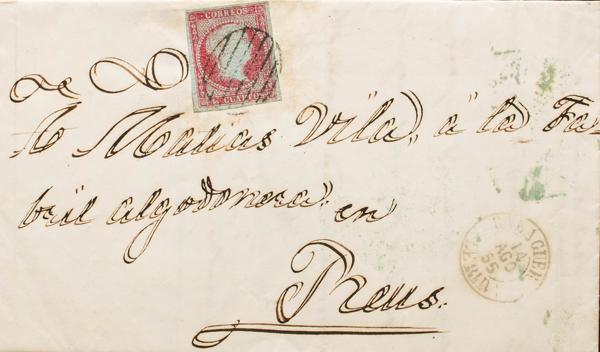 CORREOS
CUARTOS
A Matias Vila, a la Fa-
bril algodonera, en
Reus.
14
AGO
55